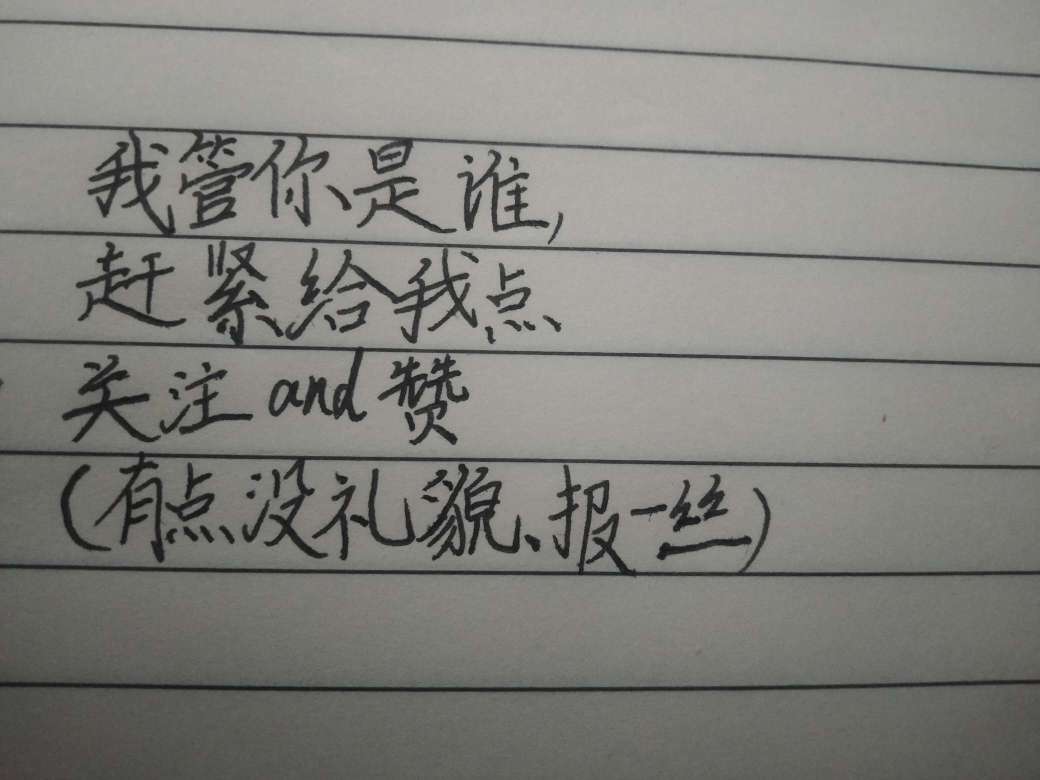 我管你是谁,
赶紧给我点
关注and赞
(有点没礼貌、报一丝)